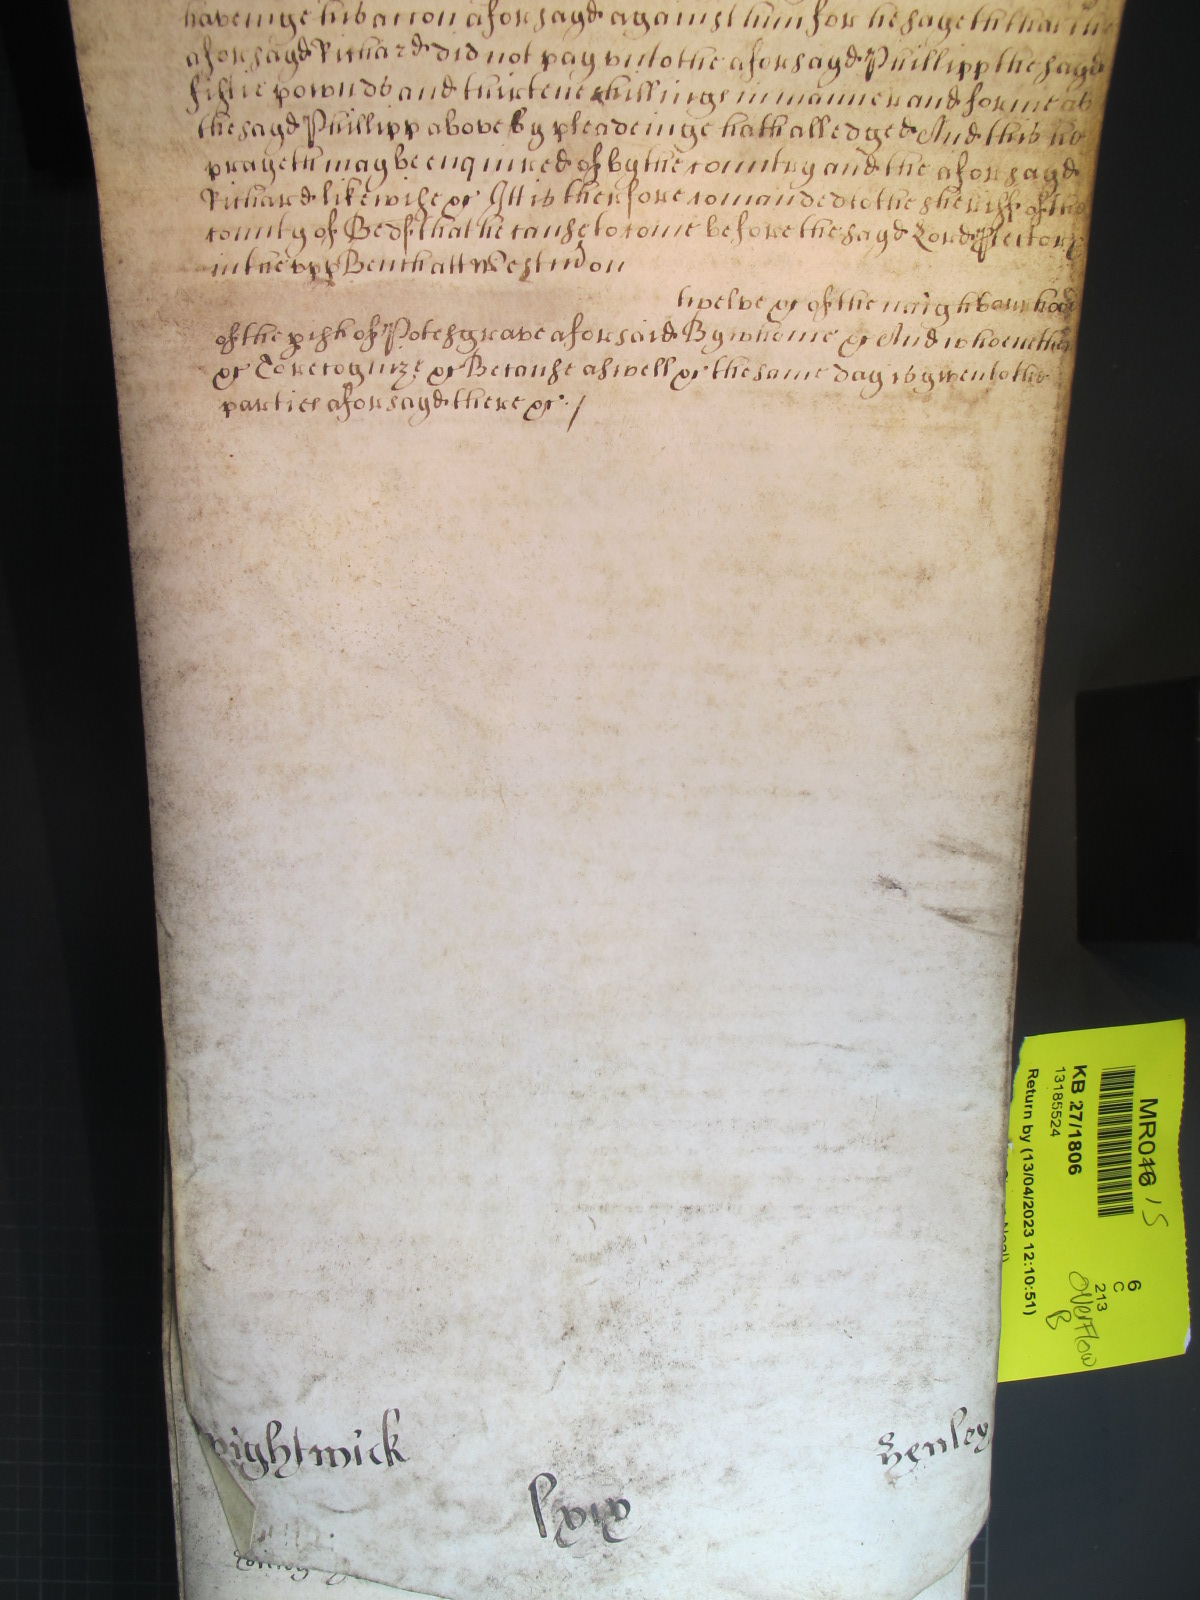 haveinge his accon aforsayd against him for he sayeth that the
aforsayd Richard did not pay unto the aforsayd Phillipp the sayd
fiftie pownds and thirtene shillings in manner and forme as
the sayd Phillipp above by pleadeinge hath alledged And this he
prayeth may be enquired of by the country and the aforsayd
Richard likewise &c Itt is therfore comanded to the sheriff of the
county of Bedf that he cause to come before the sayd Lord Ptector
in the upp Bench att Westm on
twelve &c of the neighbourhood
of the pish of Potesgrave aforsaid By whome &c And who neither
&c To recognize &c Because aswell &c the same day is given to the
parties aforsayd there &c /
Wightwick
Henley
lxix
MR046 15
KB 27/1806
13185524
Return by (13/04/2023 12:10:51)
6
C
213
Overflow
B